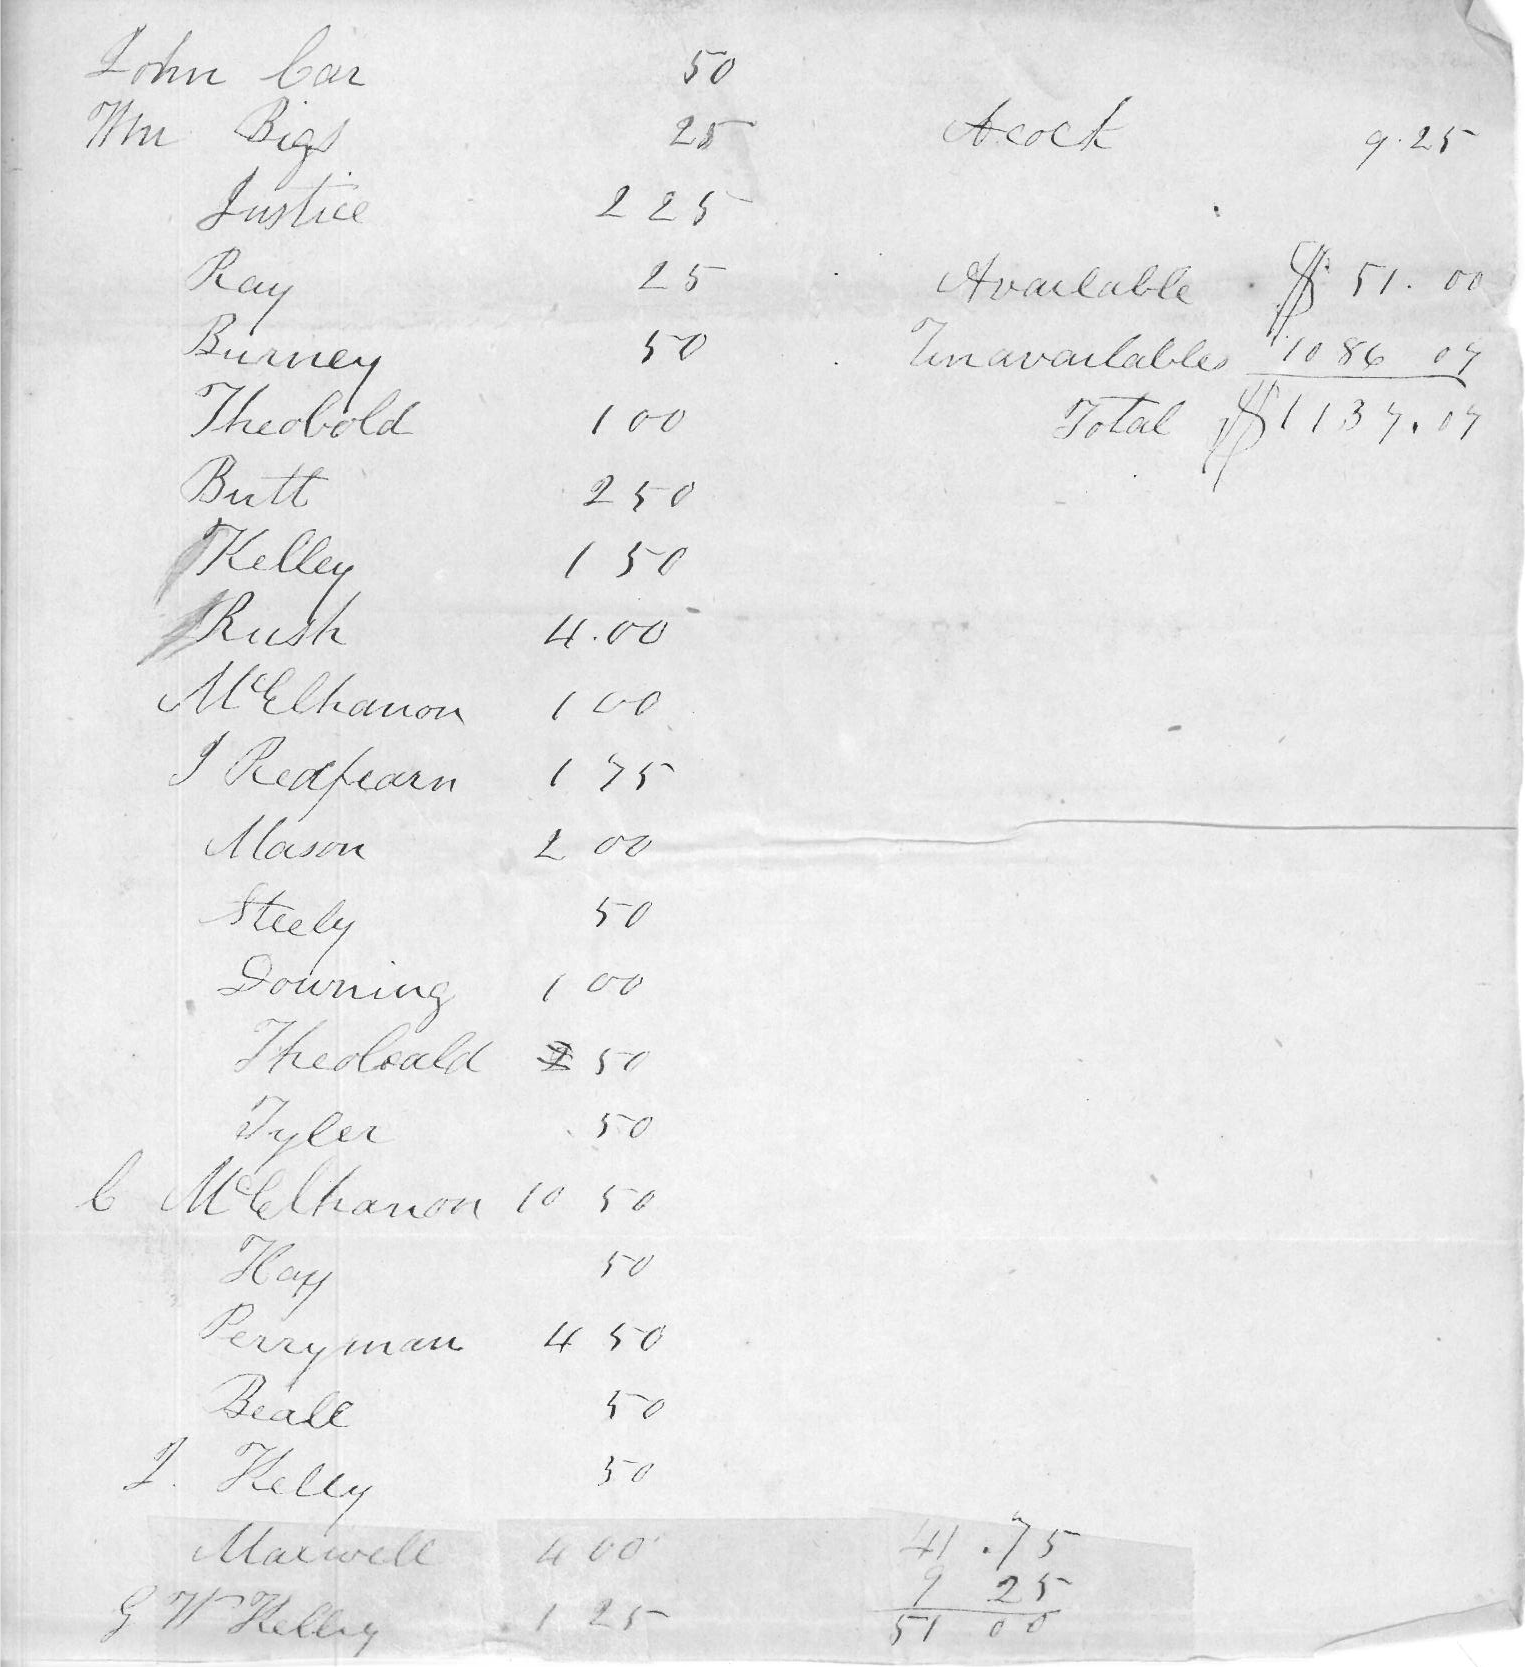 John Car 50
Wm Bigs 25 Acock 9.25
Justice 2 25
Ray 25 Available $ 51.00
Burney 50 Unavailables 1086 07
Theobold 1 00 Total $1137.07
Butt 2 50
Kelley 1 50
Rush 4.00
McElhanon 1 00
J Redfearn 1 75
Mason 2 00
Steely 50
Downing 1 00
Theobald 50
Tyler 50
C McElhanon 10 50
Hay 50
Perryman 4 50
Beall 50
J. Kelly 50
Maxwell 4 00 41.75
9 25
G W Kelley 1 25 51 00